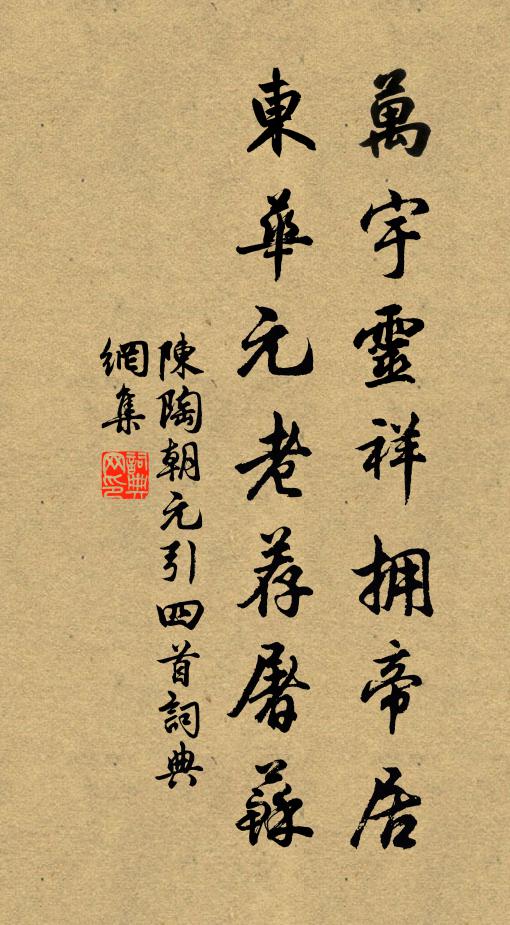 萬宇靈祥拥帝居
東華元老荐屠蘇
陳陶朝元引四首詞典
網集
詞典网印